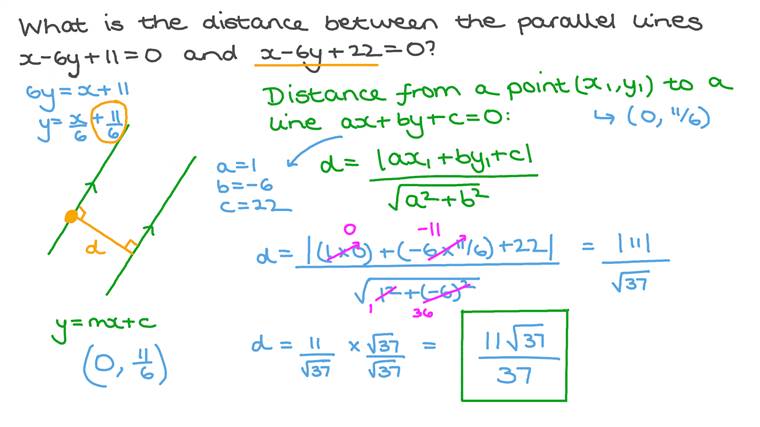 What is the distance between the parallel lines
x-6y+11=0 and x-6y+22=0?
6y=x+11
y=x/6+11/6
Distance from a point (x₁,y₁) to a
line ax+by+c=0:
↳ (0, 11/6)
a=1
b=-6
c=22
d = |ax₁+by₁+c| / √(a²+b²)
d
0
-11
d = |(1×0)+(-6×11/6)+22| / √(1²+(-6)²) = |11| / √37
1
36
y=mx+c
(0, 11/6)
d = 11/√37 × √37/√37 = 11√37/37